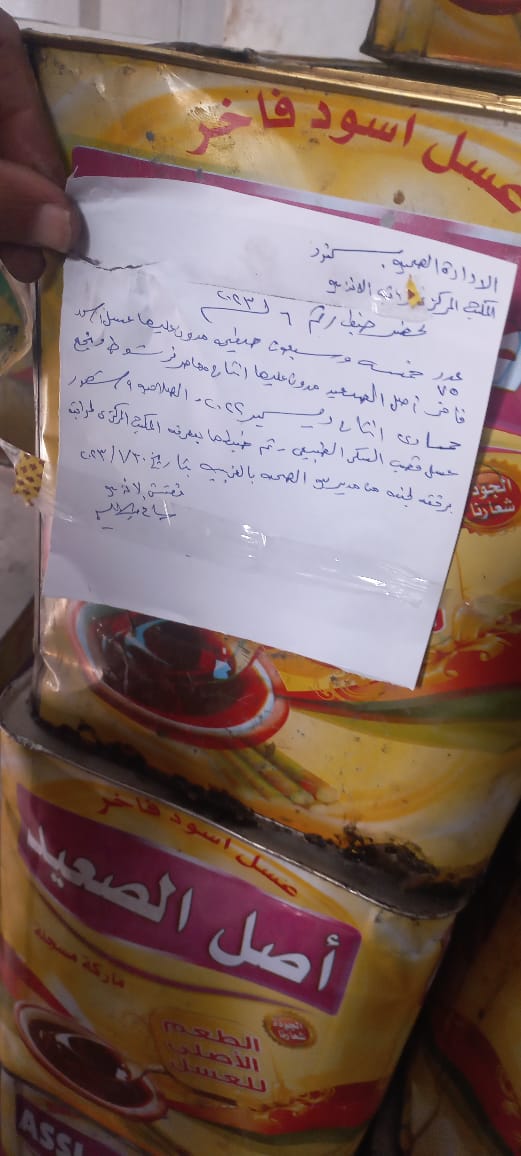 عسل اسود فاخر
الادارة الصحية بسمنود
المكتب المركزى لمراقبة الاغذية
محضر ضبط رقم ٦ لـ ٢٠٢٣
عدد خمسة وسبعون صفيحة مدون عليها عسل اسود
٧٥
فاخر أصل الصعيد مدون عليها انتاج معاصر فرشوط ونجع
حمادى انتاج ديسمبر ٢٠٢٢ الصلاحية شهور
عسل قصب السكر الطبيعى تم ضبطها بمعرفة المكتب المركزى لمراقبة
برفقة لجنة من مديرية الصحة بالغربية بتاريخ ٢٠٢٣/٧/٣٠
مفتش لاغذية
الجودة
شعارنا
عسل اسود فاخر
أصل الصعيد
ماركة مسجلة
الجودة
شعارنا
الطعم
الأصلى
للعسل
ASSL